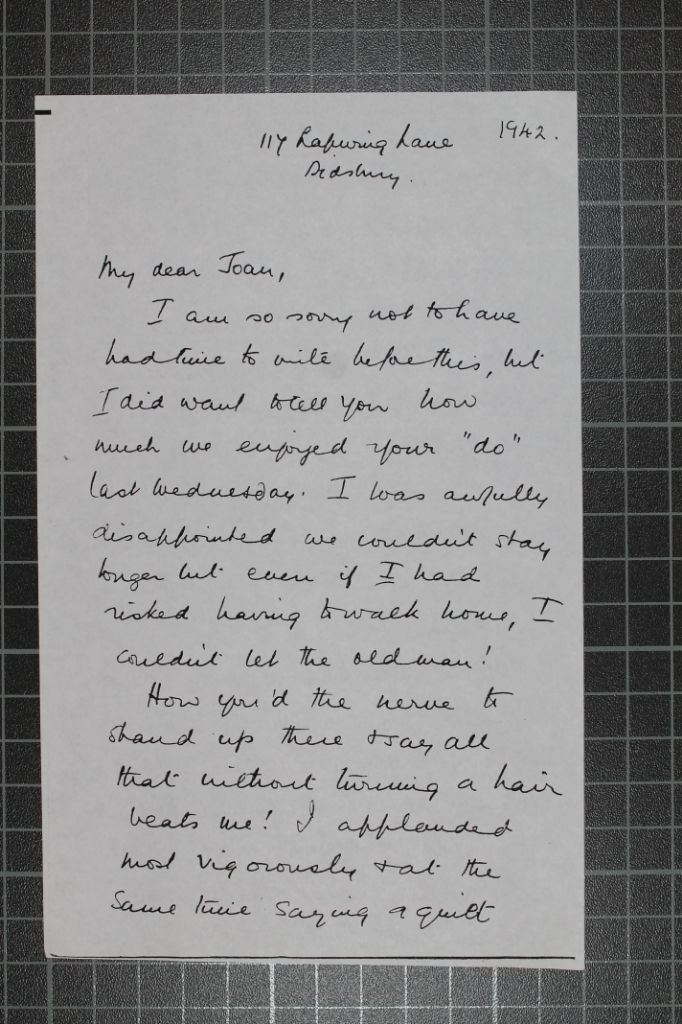 117 Lapwing Lane
1942.
Didsbury.
My dear Joan,
I am so sorry not to have
had time to write before this, but
I did want to tell you how
much we enjoyed your "do"
last Wednesday. I was awfully
disappointed we couldn't stay
longer but even if I had
risked having to walk home, I
couldn't let the old man!
How you'd the nerve to
stand up there & say all
that without turning a hair
beats me! I applauded
most vigorously & at the
same time saying a quiet